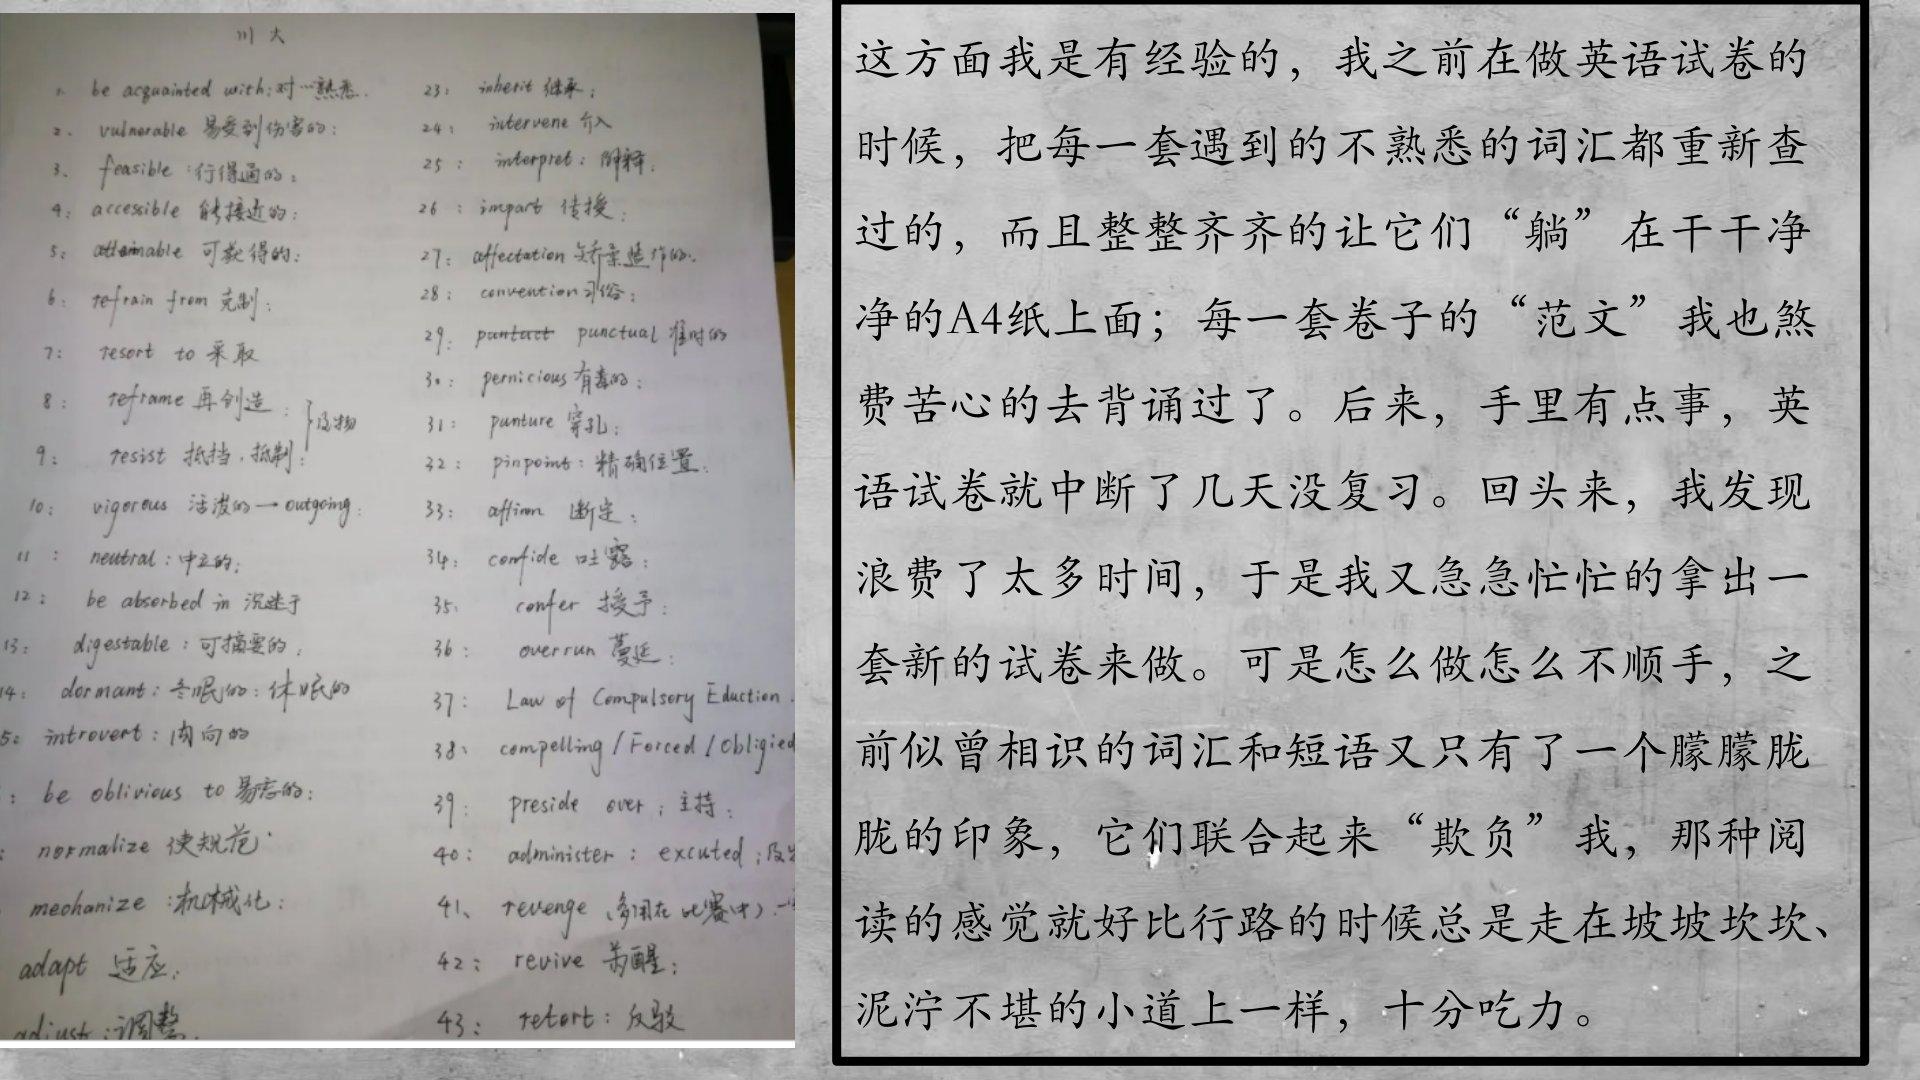 川大
1. be acquainted with:对…熟悉.
2. vulnerable 易受到伤害的:
3. feasible:行得通的:
4: accessible 能接近的:
5: attainable 可获得的:
6: refrain from 克制:
7: resort to 采取
8: reframe 再创造:
及物
9: resist 抵挡.抵制:
10: vigorous 活泼的—outgoing:
11: neutral:中立的:
12: be absorbed in 沉迷于
13: digestable:可摘要的.
14: dormant:冬眠的:休眠的
5: introvert:内向的
: be oblivious to 易忘的:
: normalize 使规范.
meohanize:机械化:
adapt 适应:
adjust:调整.
23: inherit 继承:
24: intervene 介入
25: interpret:解释.
26: impart 传授:
27: affectation 矫柔造作的.
28: convention 习俗:
29: puntuct punctual 准时的
30: pernicious 有毒的:
31: punture 穿孔:
32: pinpoint:精确位置.
33: affirm 断定:
34: confide 吐露:
35. confer 授予:
36: overrun 蔓延:
37: Law of Compulsory Eduction.
38: compelling/Forced/Obligied
39: preside over;主持:
40: administer: excuted;
41、revenge (多用在比赛中).
42: revive 苏醒:
43: retort:反驳
这方面我是有经验的，我之前在做英语试卷的
时候，把每一套遇到的不熟悉的词汇都重新查
过的，而且整整齐齐的让它们“躺”在干干净
净的A4纸上面；每一套卷子的“范文”我也煞
费苦心的去背诵过了。后来，手里有点事，英
语试卷就中断了几天没复习。回头来，我发现
浪费了太多时间，于是我又急急忙忙的拿出一
套新的试卷来做。可是怎么做怎么不顺手，之
前似曾相识的词汇和短语又只有了一个朦朦胧
胧的印象，它们联合起来“欺负”我，那种阅
读的感觉就好比行路的时候总是走在坡坡坎坎、
泥泞不堪的小道上一样，十分吃力。